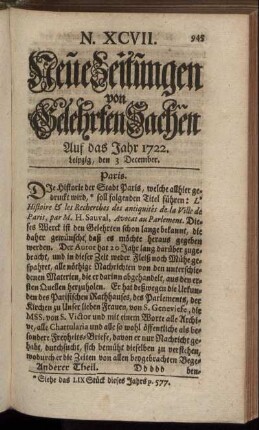 N. XCVII. 945
Neüe Zeitüngen
von
Gelehrten Sachen
Auf das Jahr 1722.
Leipzig, den 3 December.
Paris.
DIe Historie der Stadt Paris, welche allhier ge-
druckt wird, * soll folgenden Titel führen: L'
Histoire & les Recherches des antiquités de la Ville de
Paris, par M. H. Sauval, Avocat au Parlement. Die-
ses Werck ist den Gelehrten schon lange bekannt, die
daher gewünschet, daß es möchte heraus gegeben
werden. Der Autor hat 20 Jahr lang darüber zuge-
bracht, und in dieser Zeit weder Fleiß noch Mühe ge-
spahret, alle nöthige Nachrichten von den unterschie-
denen Materien, die er darinn abgehandelt, aus den er-
sten Quellen herzuholen. Er hat deßwegen die Urkun-
den des Parisischen Rathhauses, des Parlements, der
Kirchen zu Unser lieben Frauen, von S. Genevieve, die
MSS. von S. Victor und mit einem Worte alle Archi-
ve, alle Chartularia und alle so wohl öffentliche als be-
sondere Freyheits-Briefe, davon er nur Nachricht ge-
habt, durchsucht, sich bemüht dieselben zu verstehen,
wodurch er die Zeiten von allen beygebrachten Bege-
Anderer Theil. D d d d d ben-
* Siehe das LIX Stück dieses Jahrs p. 577.